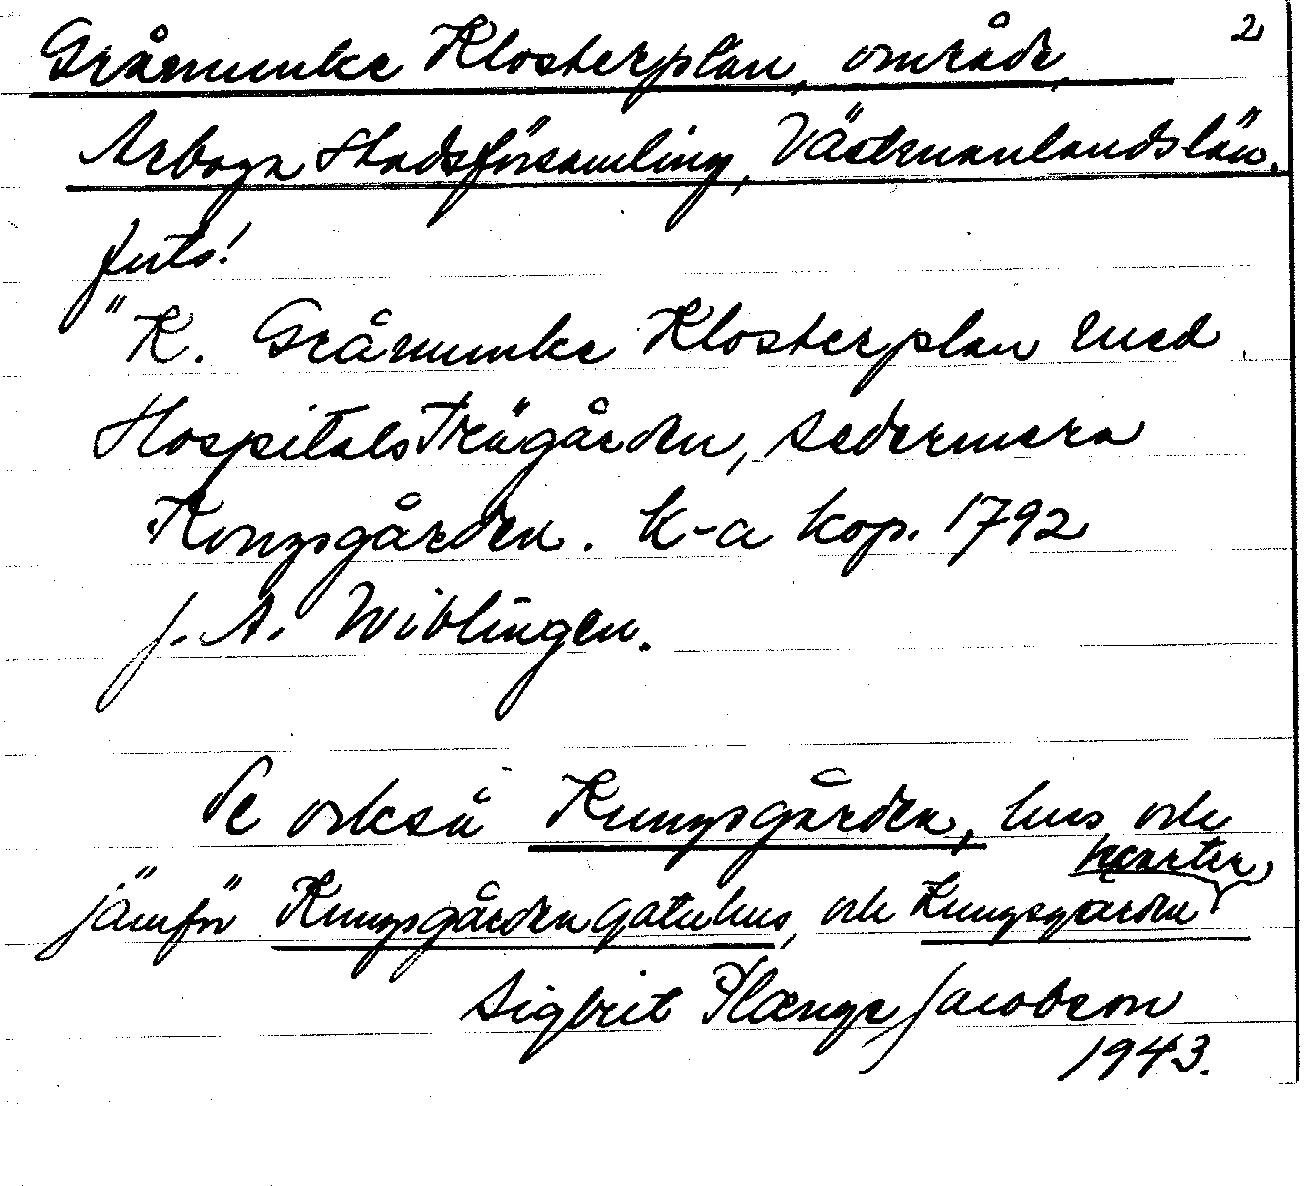 2
Gråmunke Klosterplan, område,
Arboga Stadsförsamling, Västmanlands län.
forts!
"K. Gråmunke Klosterplan med
Hospitals Trägården, sedermera
Kongsgården. k-a kop. 1792
J. A. Wiblingen.
Se också Kungsgården, hus och
kvarter
jämför Kungsgården gatuhus, och Kungsgården
Sigbrit Plænge Jacobson
1943.